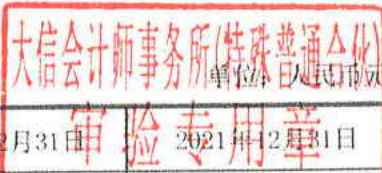 大信会计师事务所(特殊普通合伙)
单位：人民币元
审验专用章
2月31日 2021年12月31日